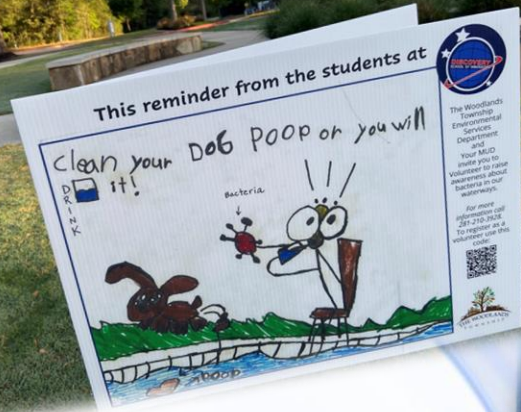 This reminder from the students at
DISCOVERY
Clean your DOG POOP or you will
DRINK
it!
Bacteria
poop
The Woodlands
Township
Environmental
Services
Department
and
Your MUD
invite you to
Volunteer to raise
awareness about
bacteria in our
waterways.
For more
information call
281-210-3928.
To register as a
volunteer use this
code:
THE WOODLANDS
TOWNSHIP